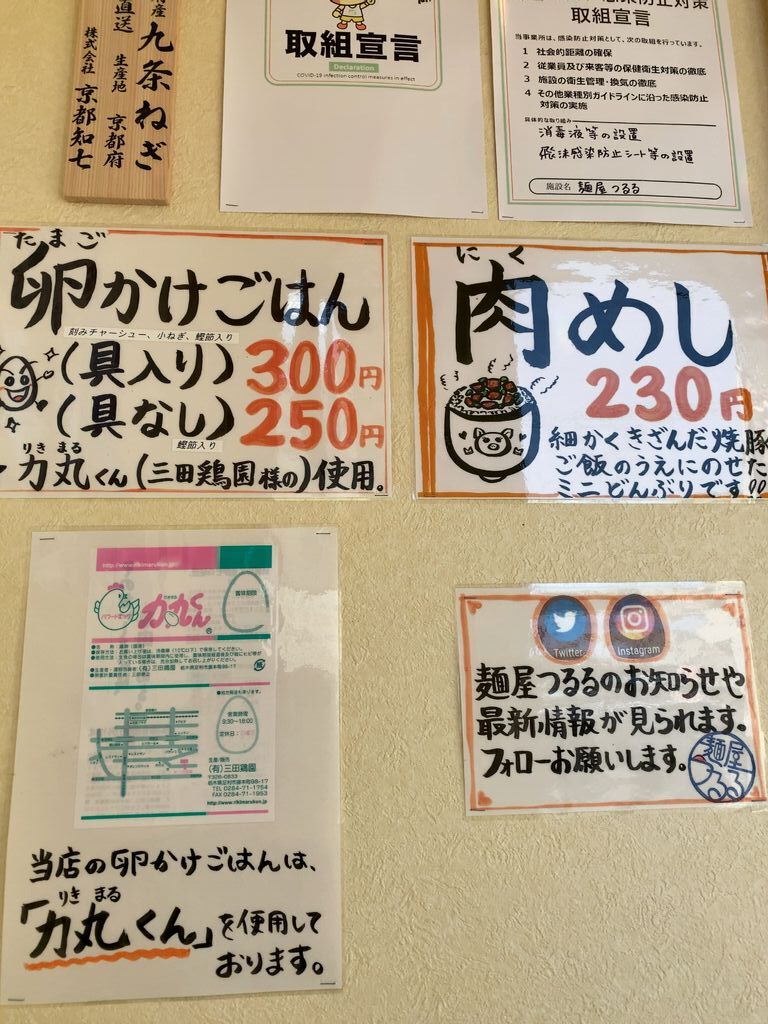 産 九条ねぎ
直送 生産地 京都府
株式会社 京都知七
取組宣言
Declaration
COVID-19 infection control measures in effect
取組宣言
当事業所は、感染防止対策として、次の取組を行っています。
1 社会的距離の確保
2 従業員及び来客等の保健衛生対策の徹底
3 施設の衛生管理・換気の徹底
4 その他業種別ガイドラインに沿った感染防止
対策の実施
具体的な取り組み
消毒液等の設置
飛沫感染防止シート等の設置
施設名 麺屋つるる
たまご
卵かけごはん
刻みチャーシュー、小ねぎ、鰹節入り
(具入り) 300円
(具なし) 250円
鰹節入り
りきまる
力丸くん(三田鶏園様の)使用。
にく
肉めし
230円
細かくきざんだ焼豚
ご飯のうえにのせた
ミニどんぶりです!!
http://www.rikimarukun.jp
力丸くん
賞味期限
営業時間
9:30~18:00
定休日:
生産/販売
(有)三田鶏園
〒326-0833
栃木県足利市藤本町98-17
TEL 0284-71-1754
FAX 0284-71-1953
http://www.rikimarukun.jp
当店の卵かけごはんは、
りき まる
「力丸くん」を使用して
おります。
Twitter
Instagram
麺屋つるるのお知らせや
最新情報が見られます。
フォローお願いします。
麺屋
つるる